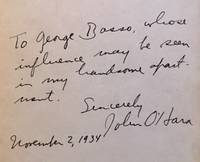 To George Basso, whose
influence may be seen
in my handsome apart-
ment.
Sincerely
John O'Hara
November 2, 1934